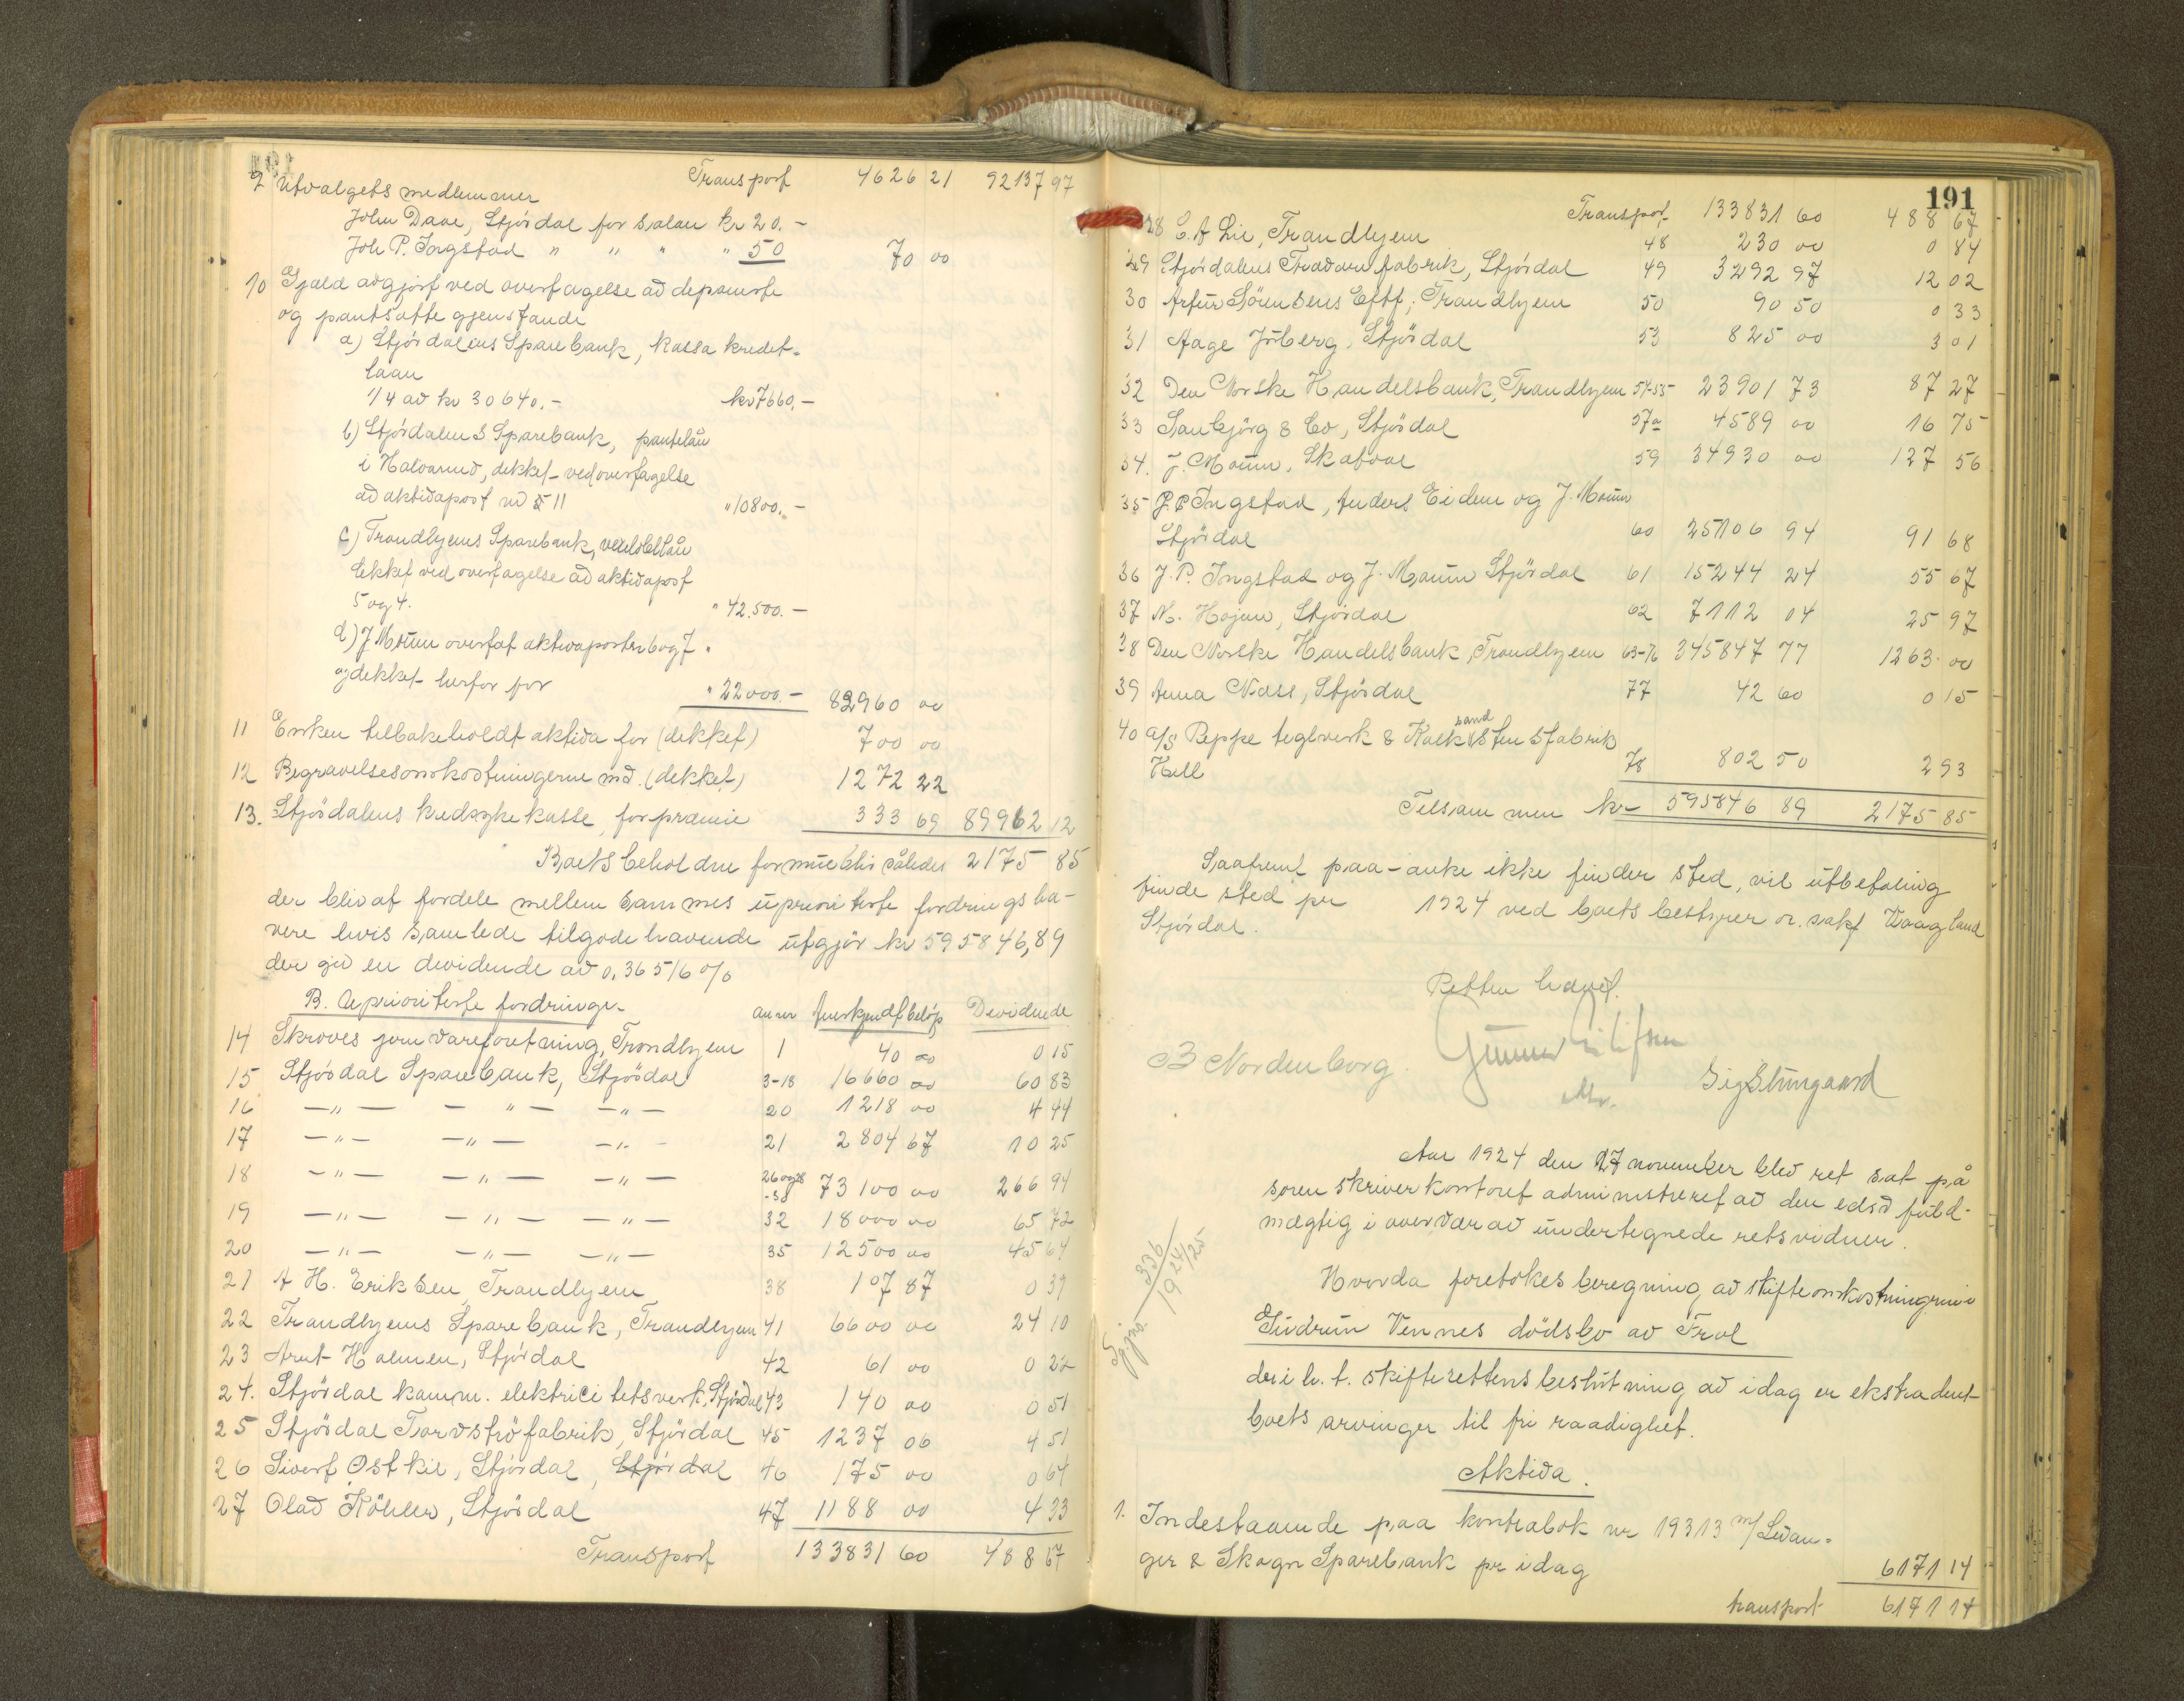 Transport 4626 21 92137 97
9 Utvalgets medlemmer
John Daae, Stjördal for salær kr 20.-
Joh P. Ingstad " " " " 50 70 00
10 Gjæld avgjort ved overtagelse av deponerte
og pantsatte gjenstande
a) Stjördalens Sparebank, kassa kredit-
laan
1/4 av kr 30640.- kr 7660.-
b) Stjördalens Sparebank, pantelån
i Halvarmo, dekket ved overtagelse
av aktivapost no 5 11 " 10800.-
c) Trondhjems Sparebank, veksellån
dekket ved overtagelse av aktivapost
5 og 4. " 42.500.-
d) J Moum overtat aktivaposter 6 og 7
og dekket herfor for " 22000.- 82960 00
11 Enken tilbakeholdt aktiva for (dekket) 700 00
12 Begravelsesomkostningerne md. (dekket) 1272 22
13. Stjördalens kredsykekasse, for præmie 333 69 89962 12
Boets beholdne formue blir således 2175 85
der bliv at fordele mellem sammes upriori terte fordringsha-
vere hvis samlede tilgodehavende utgjör kr 595846,89
der giv en devidende av 0,36516 %
B. Uprioriterte fordringer. anm Anerkjendt belöp Devidende
14 Skroves jernvareforetning, Trondhjem 1 40 00 0 15
15 Stjördal Sparebank, Stjördal 3-18 16660 00 60 83
16 -"- -"- -"- 20 1218 00 4 44
17 -"- -"- -"- 21 2804 67 10 25
18 -"- -"- -"- 26 og 28 -38 73100 00 266 94
19 -"- -"- -"- 32 18000 00 65 72
20 -"- -"- -"- 35 12500 00 45 64
21 A H. Eriksen, Trondhjem 38 107 87 0 39
22 Trondhjems Sparebank, Trondhjem 41 6600 00 24 10
23 Arnt Halmen, Stjördal 42 61 00 0 22
24. Stjördal komm. elektricitetsverk, Stjördal 43 140 00 0 51
25 Stjördal Torvströfabrik, Stjördal 45 1237 06 4 51
26 Sivert Østkil, Stjördal, Stjördal 46 175 00 0 64
27 Olav Köhler, Stjördal 47 1188 00 4 33
Transport 133831 60 488 67
191
Transport 133831 60 488 67
28 C. A Lie, Trondhjem 48 230 00 0 84
29 Stjördalens Trævarefabrik, Stjördal 49 3292 97 12 02
30 Artur Sörensens Eftf, Trondhjem 50 90 50 0 33
31 Aage Julberg, Stjördal 53 825 00 3 01
32 Den Norske Handelsbank, Trondhjem 54-55 23901 73 87 27
33 Sandjörg & Co, Stjördal 57a 4589 00 16 75
34. J. Moum, Skatval 59 34930 00 127 56
35 J. P Ingstad, Anders Eidem og J. Moum
Stjördal 60 25106 94 91 68
36 J. P. Ingstad og J. Moum Stjördal 61 15244 24 55 67
37 N. Hojem, Stjördal 62 7112 04 25 97
38 Den Norske Handelsbank, Trondhjem 63-76 345847 77 1263 00
39 Anna Næss, Stjördal 77 42 60 0 15
40 a/s Reppe teglverk & Kalksandstensfabrik
Hell 78 802 50 2 93
Tilsammen kr 595846 89 2175 85
Saafremt paa-anke ikke finder sted, vil utbetaling
finde sted pr 1924 ved boets bestyrer o.r.sakf Waagland
Stjördal.
Retten hævet.
B Nordenborg. Gunnar Eilifsen Sig Stungaard
Mv.
Aar 1924 den 27 november blev ret sat på
sorenskriverkontoret administreret av den edsv fuld-
mægtig i overvær av undertegnede retsvidner.
Hvorda foretokes beregning av skifteomkostningerne i
Gudrun Vennes dödsbo av Frol
der i h. t. skifterettens beslutning av idag er ekstradert
boets arvinger til fri raadighet.
S.jno. 336/1924/25
Aktiva.
1. Indestaaende paa kontrabok nr 19313 m/ Levan-
ger & Skogn Sparebank pr idag 6171 14
transport 6171 14